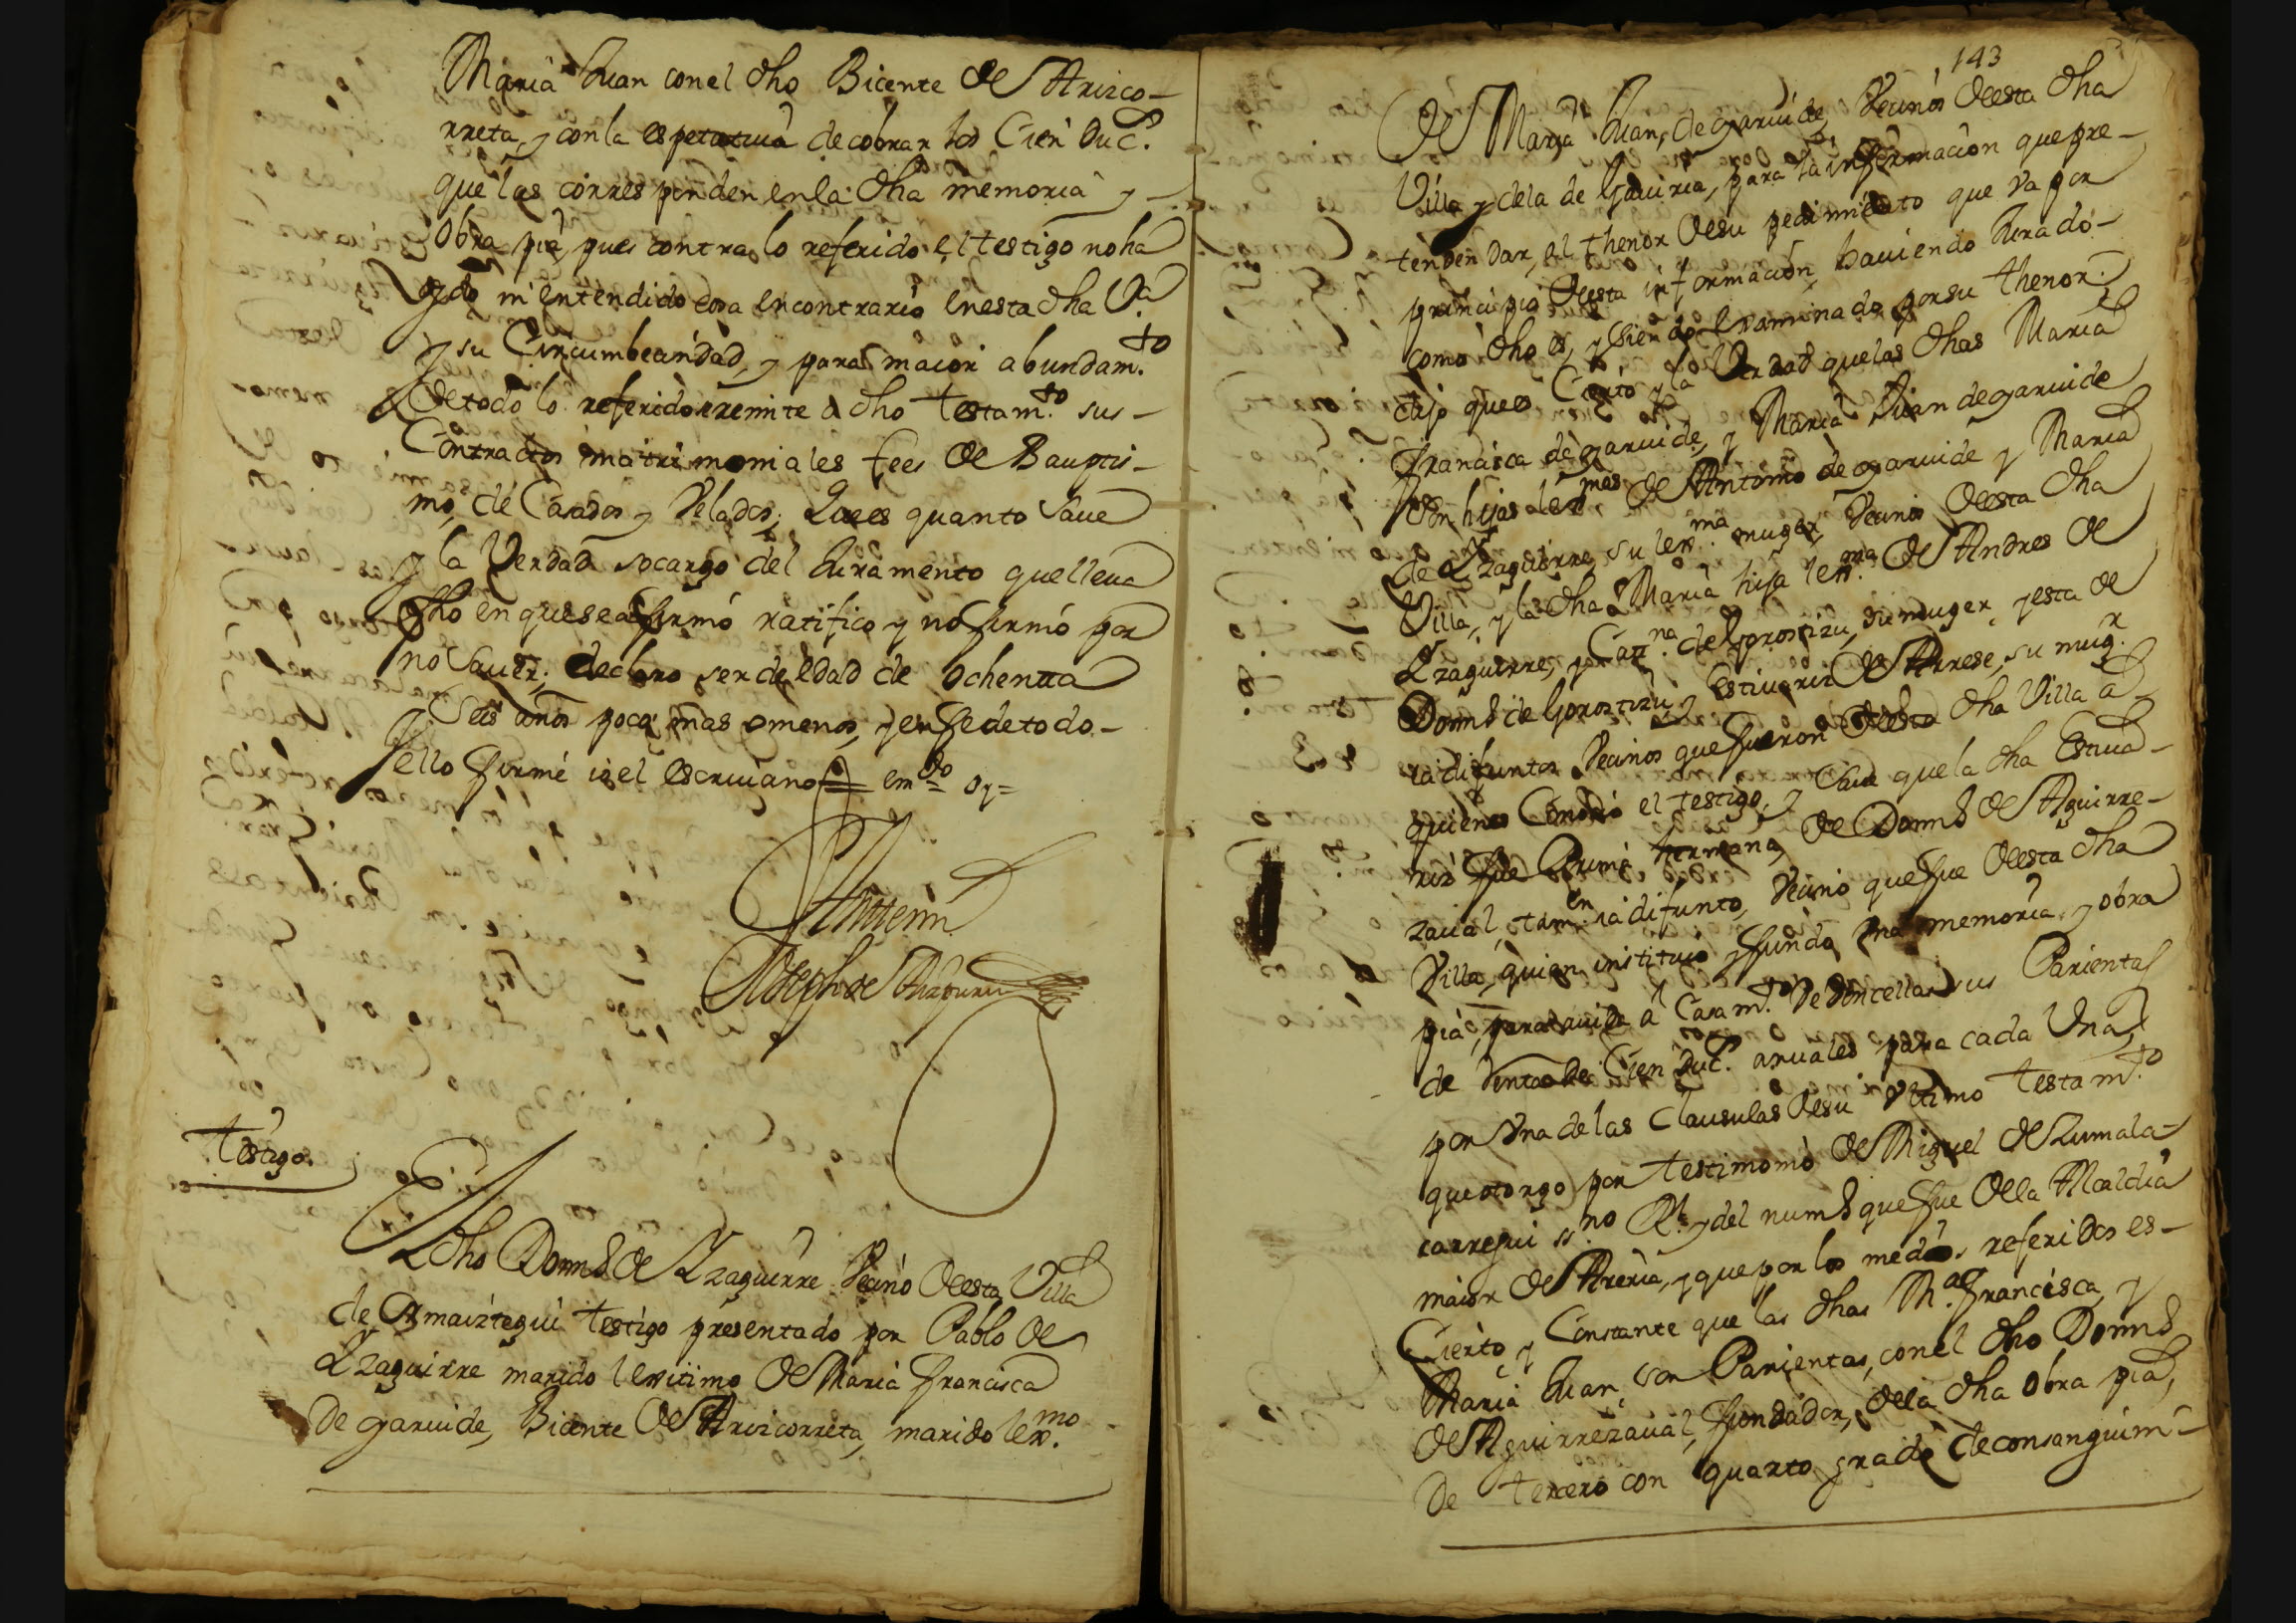 Maria Juan con el dho Bicente de Arizco-
rreta, y con la espetatiua de cobrar los Cien Duc.s
que las corresponden en la dha memoria y
obra pia, pues contra lo referido el testigo no ha
oydo ni entendido cosa en contrario en esta dha V.a
y su Circumbecindad, y para maior abundam.to
de todo lo referido se remite a dho testam.to sus-
Contractos matrimoniales fees de Bauptis-
mo, de Casados y Velados, Que es quanto saue
y la Verdad socargo del Juramento que lleua
dho en que se afirmó ratifico y no firmó por
no sauer, declaro ser de edad de ochenta
y seis años poco mas o menos, y en fe de todo-
ello firmé io el escriuano = em.do oy=
Ante mi
Joseph de
Testigo.
El dho Dom.o de Yzaguirre Vecino de esta Villa
de Amaiztegui testigo presentado por Pablo de
Yzaguirre marido lexitimo de Maria Francisca
de garuide, Bicente de Arizcorreta, marido lex.mo
143
de Maria Juan, de garuide, Vecinos de esta dha
Villa y de la de Gauiria, para la informacion que pre-
tenden dar, el thenor de su pedimiento que va por
principio de esta informacion, hauiendo Jurado-
como dho es, y siendo Examinado por su thenor,
dijo que es Cierto y la Verdad que las dhas Maria
Francisca de garuide, y Maria Juan de garuide
son hijas lex.mas de Antonio de garuide y Maria
de Yzaguirre, su lex.ma muger, Vecinos de esta dha
Villa, y la dha Maria hija lex.ma de Andres de
Yzaguirre, y Cat.na de Gorostizu, su muger, y esta de
Dom.o de Gorostizu, y Estiuariz de Arrese, su mug.r
ia difuntos Vecinos que fueron de esta dha Villa a
quienes Conoció el testigo, y saue que la dha Estiua-
riz fue Prima hermana, de Dom.o de Aguirre-
zaual, tam.en ia difunto, Vecino que fue de esta dha
Villa, quien instituió y fundó vna memoria y obra
pia, para aiuda a Casam.to de doncellas sus Parientas
de Cien Duc.s anuales para cada Vna,
por Vna de las Clausulas de su Vltimo testam.to
que otorgo por testimonio de Miguel de Zumala-
carregui ss.no R.l y del num.o que fue de la Alcaldia
maior de Areria, y que por los medios referidos es-
Cierto y Constante que las dhas M.a Francisca, y
Maria Juan son Parientas, con el dho Dom.o
de Aguirrezaual, fundador, de la dha obra pia,
de tercero con quarto grado de consanguini-